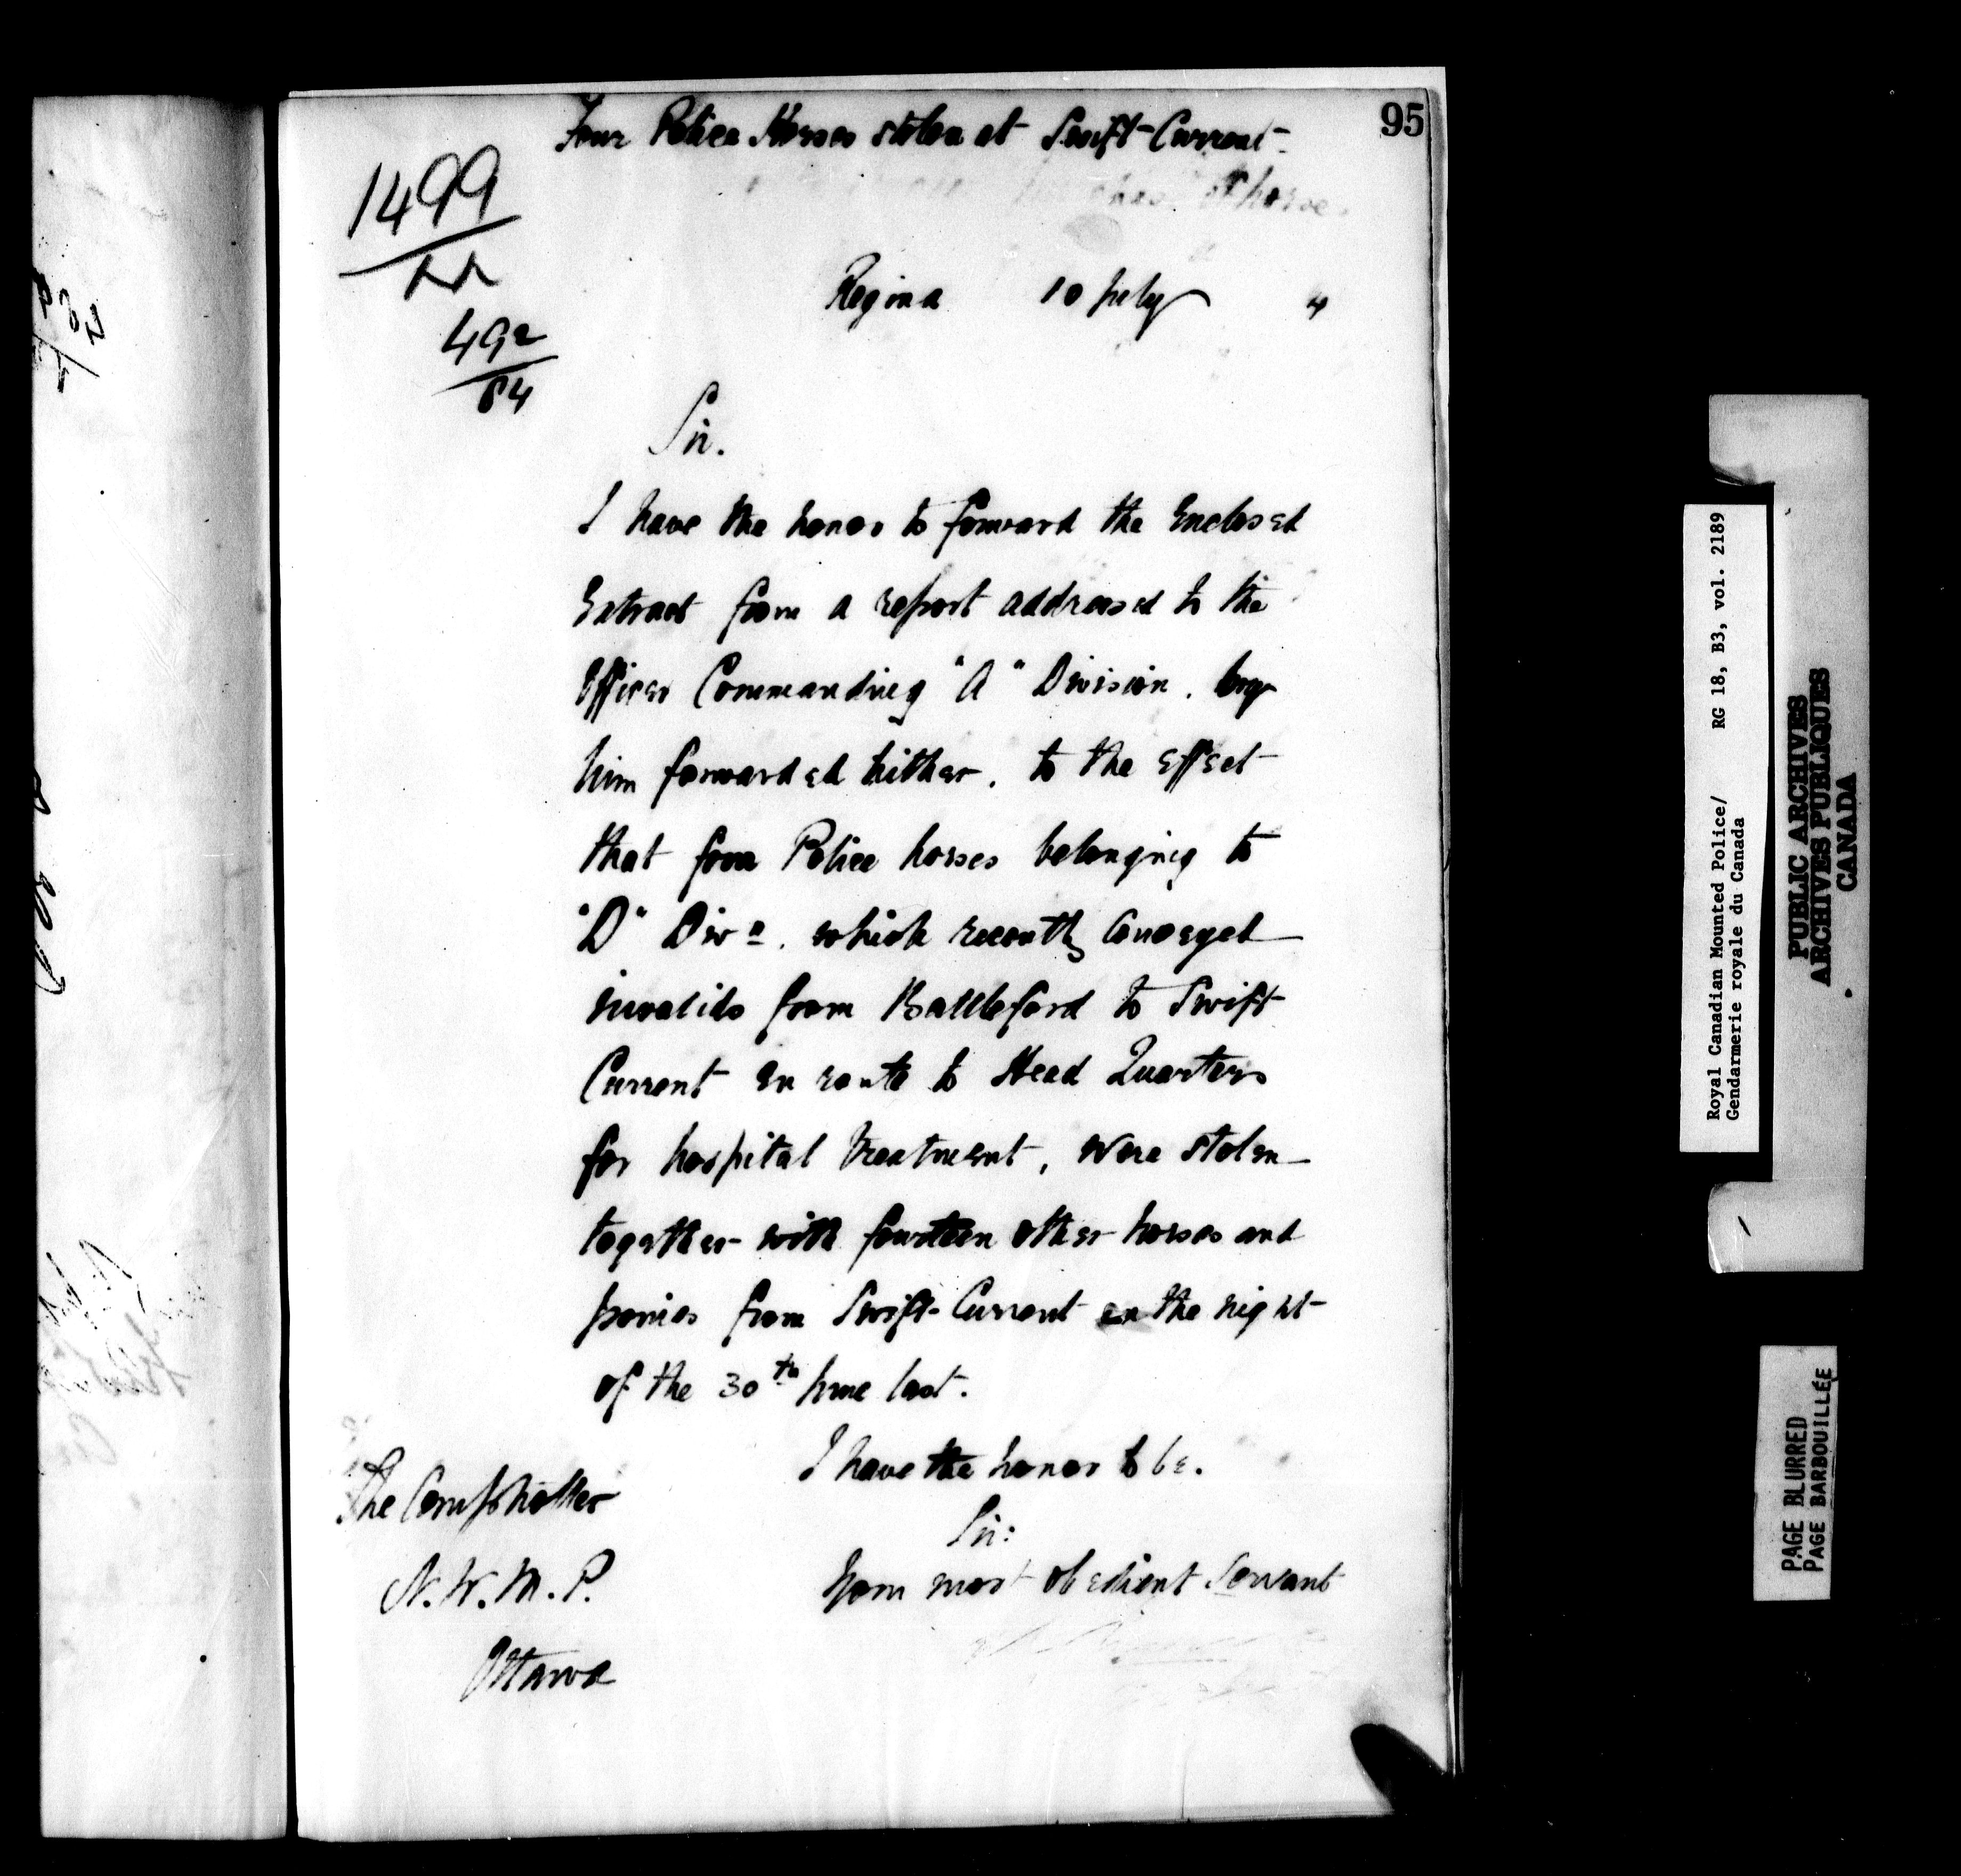 95
Four Police Horses stolen at Swift Current
horse
1499
492
84
Regina 10 July 4
Sir.
I have the honor to forward the Enclosed
Extract from a report addressed to the
Officer Commanding "A" Division. by
him forwarded hither. to the effect
that four Police horses belonging to
"D" Divn. which recently conveyed
invalids from Battleford to Swift
Current en route to Head Quarters
for hospital treatment, were stolen
together with fourteen other horses and
ponies from Swift Current on the night
of the 30th June last.
I have the honor to be.
Sir:
Your most obedient Servant
The Comptroller
N. W. M. P.
Ottawa
Royal Canadian Mounted Police/ RG 18, B3, vol. 2189
Gendarmerie royale du Canada
PUBLIC ARCHIVES
ARCHIVES PUBLIQUES
CANADA
PAGE BLURRED
PAGE BARBOUILLÉE